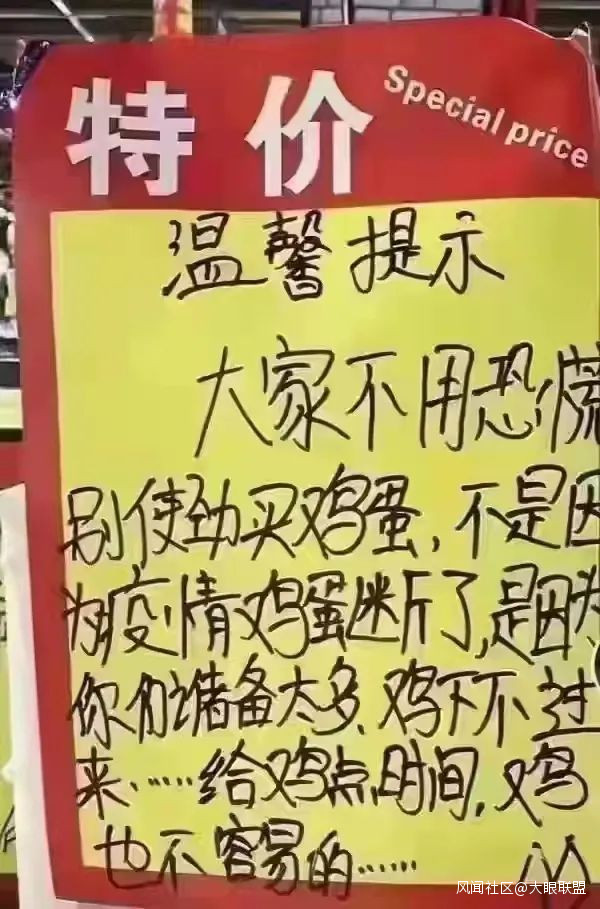 特价
Special price
温馨提示
大家不用恐慌
别使劲买鸡蛋,不是因
为疫情鸡蛋断了,是因为
你们储备太多,鸡下不过
来……给鸡点时间,鸡
也不容易的……
风闻社区@大眼联盟